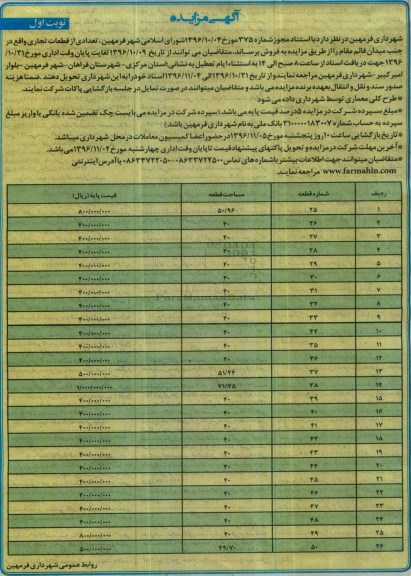 آگهی مزایده
نوبت اول
شهرداری فرمهین در نظر دارد با استناد مجوز شماره ۳۷۵ مورخ ۱۳۹۶/۱۰/۰۴ شورای اسلامی شهر فرمهین، تعدادی از قطعات تجاری واقع در
جنب میدان قائم مقام را از طریق مزایده به فروش برساند. متقاضیان می توانند از تاریخ ۱۳۹۶/۱۰/۰۹ لغایت پایان وقت اداری مورخ ۱۰/۲۱/
۱۳۹۶ جهت دریافت اسناد از ساعت ۸ صبح الی ۱۴ به استثناء ایام تعطیل به نشانی: استان مرکزی - شهرستان فراهان - شهر فرمهین - بلوار
امیرکبیر - شهرداری فرمهین مراجعه نمایند و از تاریخ ۱۳۹۶/۱۰/۲۱ الی ۱۳۹۶/۱۱/۰۴ اسناد خود را به این شهرداری تحویل دهند. ضمنا هزینه
صدور سند و نقل و انتقال بعهده برنده مزایده می باشد و متقاضیان میتوانند در صورت تمایل در جلسه بازگشایی پاکات شرکت نمایند.
* طرح کلی معماری توسط شهرداری داده می شود
* مبلغ سپرده شرکت در مزایده ۵ درصد قیمت پایه می باشد. (سپرده شرکت در مزایده می بایست چک تضمین شده بانکی یا واریز مبلغ
سپرده به حساب شماره ۳۱۰۰۰۰۰۱۸۳۰۰۷ بانک ملی به نام شهرداری فرمهین باشد)
* تاریخ بازگشایی ساعت ۱۰ روز پنجشنبه مورخ ۱۳۹۶/۱۱/۰۵ در حضور اعضا کمیسیون معاملات در محل شهرداری میباشد.
* آخرین مهلت شرکت در مزایده و تحویل پاکتهای پیشنهاد قیمت تا پایان وقت اداری چهارشنبه مورخ ۱۳۹۶/۱۱/۰۴ می باشد.
* متقاضیان میتوانند جهت اطلاعات بیشتر با شماره های تماس ۰۸۶۳۳۷۲۲۵۰۰-۰۸۶۳۳۷۲۲۰۵۵ یا آدرس اینترنتی
www.farmahin.com مراجعه نمایند.
ردیف شماره قطعه مساحت قطعه قیمت پایه (ریال)
۱ ۲۵ ۵۰/۹۶ ۸۰۰/۰۰۰/۰۰۰
۲ ۲۶ ۴۰ ۴۰۰/۰۰۰/۰۰۰
۳ ۲۷ ۴۰ ۴۰۰/۰۰۰/۰۰۰
۴ ۲۸ ۴۰ ۴۰۰/۰۰۰/۰۰۰
۵ ۲۹ ۴۰ ۴۰۰/۰۰۰/۰۰۰
۶ ۳۰ ۴۰ ۴۰۰/۰۰۰/۰۰۰
۷ ۳۱ ۴۰ ۴۰۰/۰۰۰/۰۰۰
۸ ۳۲ ۴۰ ۴۰۰/۰۰۰/۰۰۰
۹ ۳۳ ۴۰ ۴۰۰/۰۰۰/۰۰۰
۱۰ ۳۴ ۴۰ ۴۰۰/۰۰۰/۰۰۰
۱۱ ۳۵ ۴۰ ۴۰۰/۰۰۰/۰۰۰
۱۲ ۳۶ ۴۰ ۴۰۰/۰۰۰/۰۰۰
۱۳ ۳۷ ۵۱/۲۶ ۵۰۰/۰۰۰/۰۰۰
۱۴ ۳۸ ۷۱/۷۵ ۱/۰۰۰/۰۰۰/۰۰۰
۱۵ ۳۹ ۴۰ ۴۰۰/۰۰۰/۰۰۰
۱۶ ۴۰ ۴۰ ۴۰۰/۰۰۰/۰۰۰
۱۷ ۴۱ ۴۰ ۴۰۰/۰۰۰/۰۰۰
۱۸ ۴۲ ۴۰ ۴۰۰/۰۰۰/۰۰۰
۱۹ ۴۳ ۴۰ ۴۰۰/۰۰۰/۰۰۰
۲۰ ۴۴ ۴۰ ۴۰۰/۰۰۰/۰۰۰
۲۱ ۴۵ ۴۰ ۴۰۰/۰۰۰/۰۰۰
۲۲ ۴۶ ۴۰ ۴۰۰/۰۰۰/۰۰۰
۲۳ ۴۷ ۴۰ ۴۰۰/۰۰۰/۰۰۰
۲۴ ۴۸ ۴۰ ۴۰۰/۰۰۰/۰۰۰
۲۵ ۴۹ ۴۰ ۸۰۰/۰۰۰/۰۰۰
۲۶ ۵۰ ۴۹/۷۰ ۵۰۰/۰۰۰/۰۰۰
روابط عمومی شهرداری فرمهین